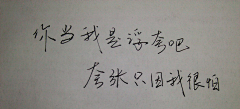 你当我是浮夸吧
夸张只因我很怕